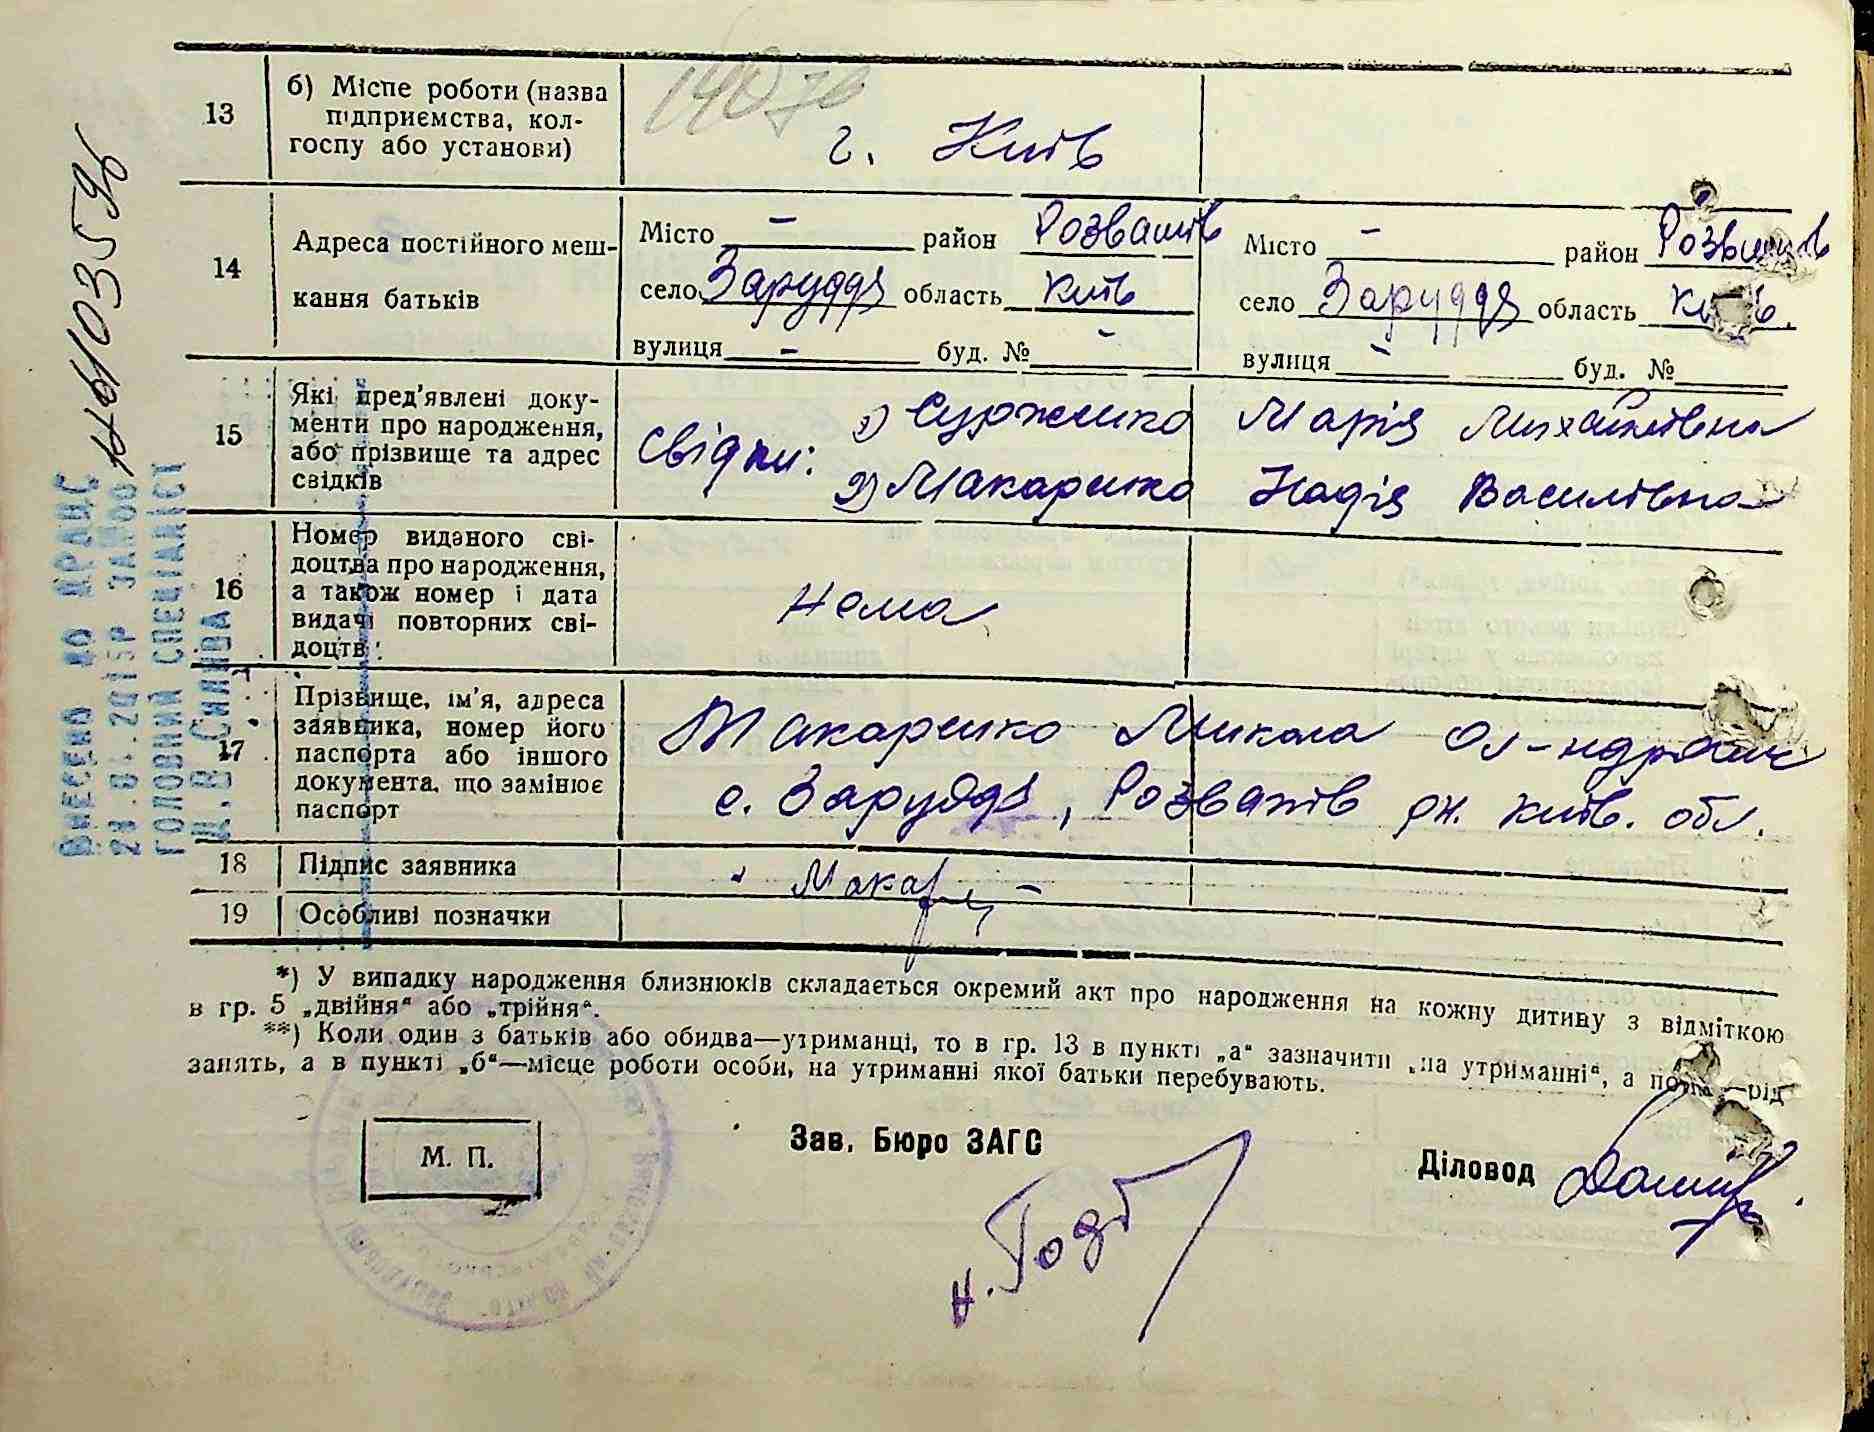 13
б) Місце роботи (назва
підприємства, кол-
госпу або установи)
14076
г. Київ
14
Адреса постійного меш-
кання батьків
Місто – район Розважів
село Заруддя область Київ
вулиця – буд. № –
Місто – район Розважів
село Заруддя область Київ.
вулиця – буд. №
15
Які пред'явлені доку-
менти про народження,
або прізвище та адрес
свідків
Свідки: 1) Сурженко Марія Михайлівна
2) Макаренко Надія Василівна
16
Номер виданого сві-
доцтва про народження,
а також номер і дата
видачі повторних сві-
доцтв
Нема
17
Прізвище, ім'я, адреса
заявника, номер його
паспорта або іншого
документа, що замінює
паспорт
Макаренко Микола Ол-ндрович
с. Заруддя, Розважів рн. Київ. обл.
18
Підпис заявника
Макар
19
Особливі позначки
*) У випадку народження близнюків складається окремий акт про народження на кожну дитину з відміткою
в гр. 5 „двійня“ або „трійня“.
**) Коли один з батьків або обидва—утриманці, то в гр. 13 в пункті „а“ зазначити „на утриманні“, а рід
занять, а в пункті „б“—місце роботи особи, на утриманні якої батьки перебувають.
М. П.
Зав. Бюро ЗАГС
Діловод
ВНЕСЕНО ДО ДРАЦС
ЗА №00
ГОЛОВНИЙ СПЕЦІАЛІСТ